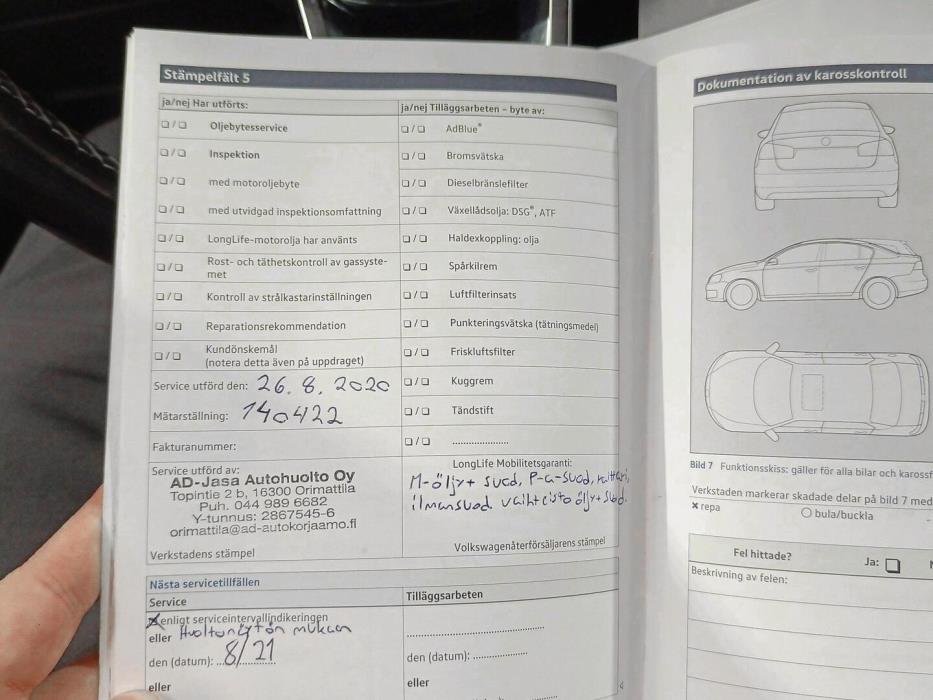 Stämpelfält 5
ja/nej Har utförts:
❑ / ❑ Oljebytesservice
❑ / ❑ Inspektion
❑ / ❑ med motoroljebyte
❑ / ❑ med utvidgad inspektionsomfattning
❑ / ❑ LongLife-motorolja har använts
❑ / ❑ Rost- och täthetskontroll av gassyste-
met
❑ / ❑ Kontroll av strålkastarinställningen
❑ / ❑ Reparationsrekommendation
❑ / ❑ Kundönskemål
(notera detta även på uppdraget)
Service utförd den: 26. 8. 2020
Mätarställning: 140422
Fakturanummer:
Service utförd av:
AD-Jasa Autohuolto Oy
Topintie 2 b, 16300 Orimattila
Puh. 044 989 6682
Y-tunnus: 2867545-6
orimattila@ad-autokorjaamo.fi
Verkstadens stämpel
ja/nej Tilläggsarbeten – byte av:
❑ / ❑ AdBlue®
❑ / ❑ Bromsvätska
❑ / ❑ Dieselbränslefilter
❑ / ❑ Växellådsolja: DSG®, ATF
❑ / ❑ Haldexkoppling: olja
❑ / ❑ Spårkilrem
❑ / ❑ Luftfilterinsats
❑ / ❑ Punkteringsvätska (tätningsmedel)
❑ / ❑ Friskluftsfilter
❑ / ❑ Kuggrem
❑ / ❑ Tändstift
❑ / ❑ ......................
LongLife Mobilitetsgaranti:
M-öljy + suod, P-a-suod, raittari,
ilmansuod vaihteisto öljy + suod.
Volkswagenåterförsäljarens stämpel
Nästa servicetillfällen
Service
enligt serviceintervallindikeringen
eller Huoltonäytön mukaan
den (datum): 8/21
eller
Tilläggsarbeten
den (datum): ....................
eller
Dokumentation av karosskontroll
Bild 7 Funktionsskiss: gäller för alla bilar och
Verkstaden markerar skadade delar på bild 7 med
x repa ○ bula/buckla
Fel hittade? Ja: ❑
Beskrivning av felen: